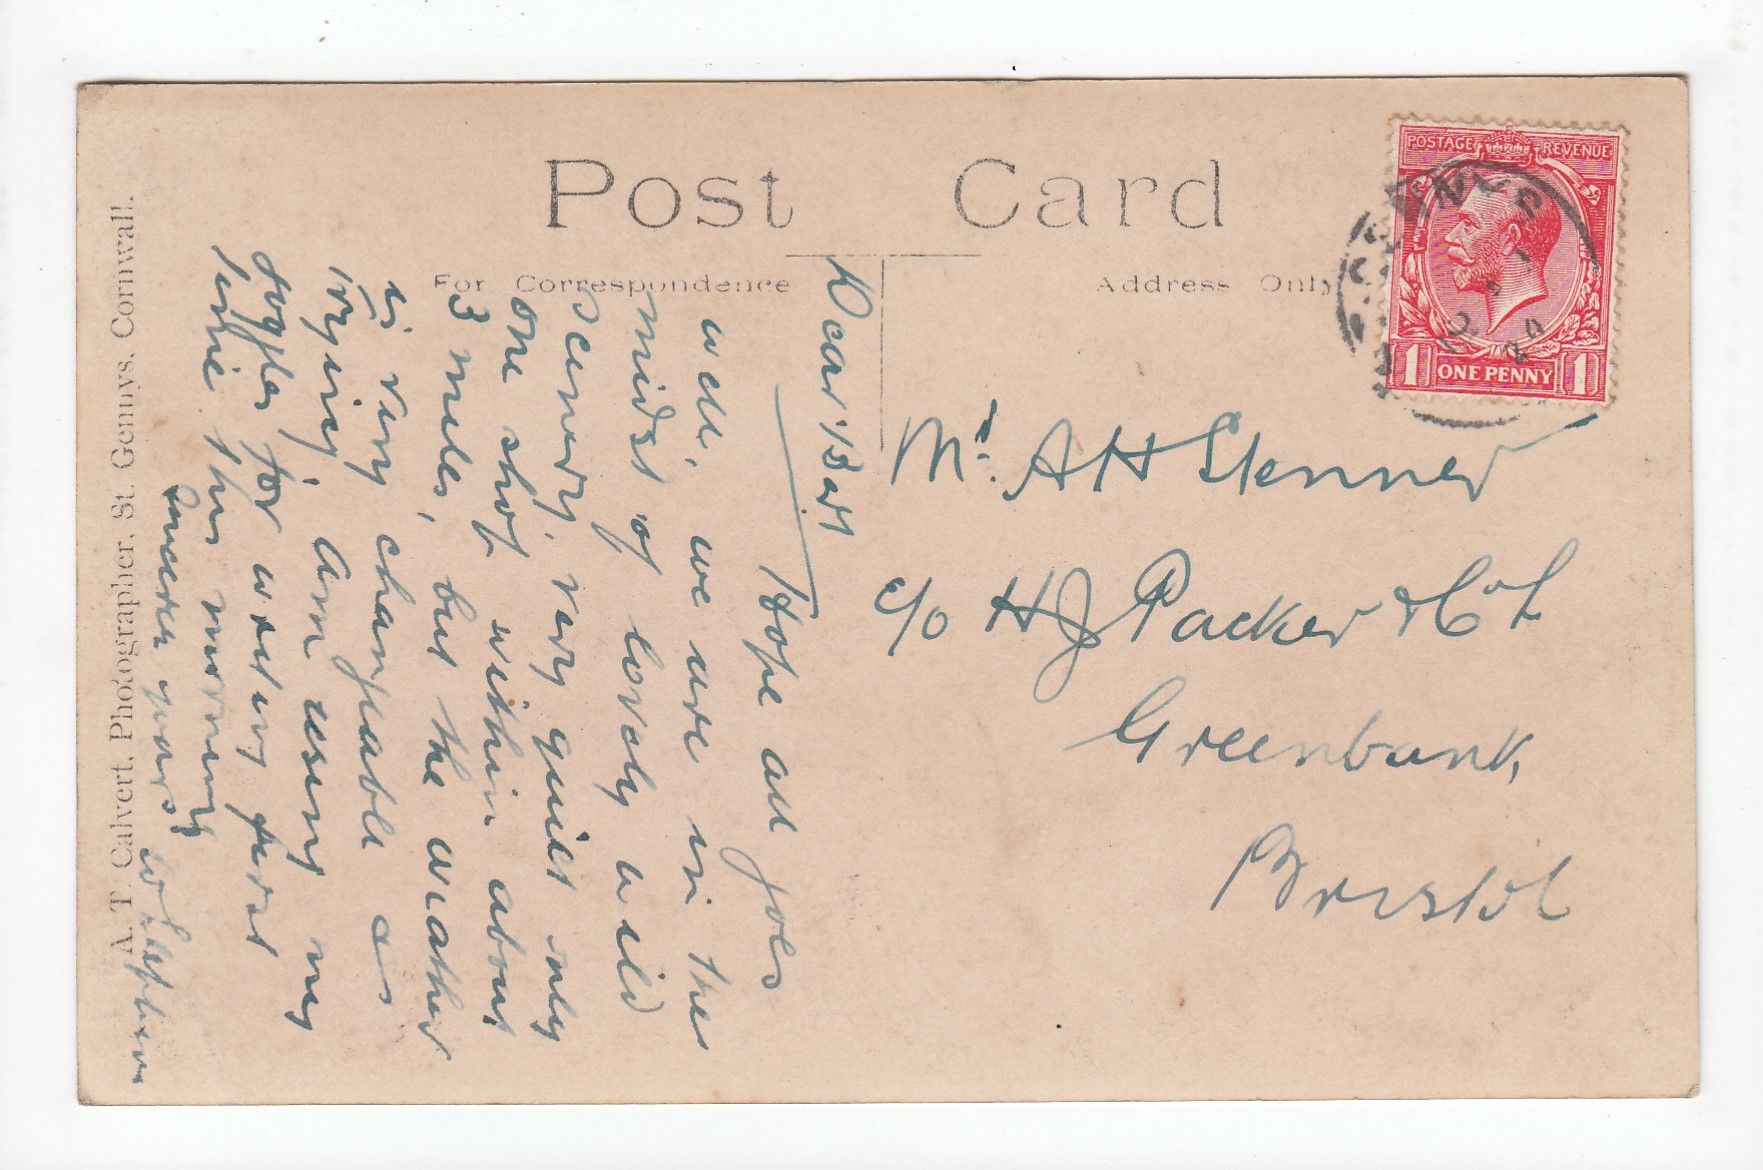 Post Card
For Correspondence
Address Only
POSTAGE REVENUE
1 ONE PENNY 1
Mr. A H Stenner
c/o H J Packer & Co L
Greenbank,
Bristol
Dear Bart
Hope all goes
well, we are in the
midst of lovely wild
scenery, very quiet only
one shop within about
3 miles, but the weather
is very changeable &
trying. Am using my
for writing first
time this morning
Sincerely yours W
A. T. Calvert, Photographer, St. Gennys, Cornwall.